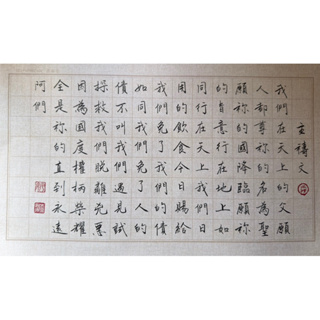 主禱文
我們在天上的父願
人都尊祢的名為聖
願祢的國降臨願祢
的旨意行在地上如
同行在天上我們日
用的飲食今日賜給
我們免了我們的債
如同我們免了人的
債不叫我們遇見試
探救我們脫離兇惡
因為國度權柄榮耀
全是祢的直到永遠
阿們